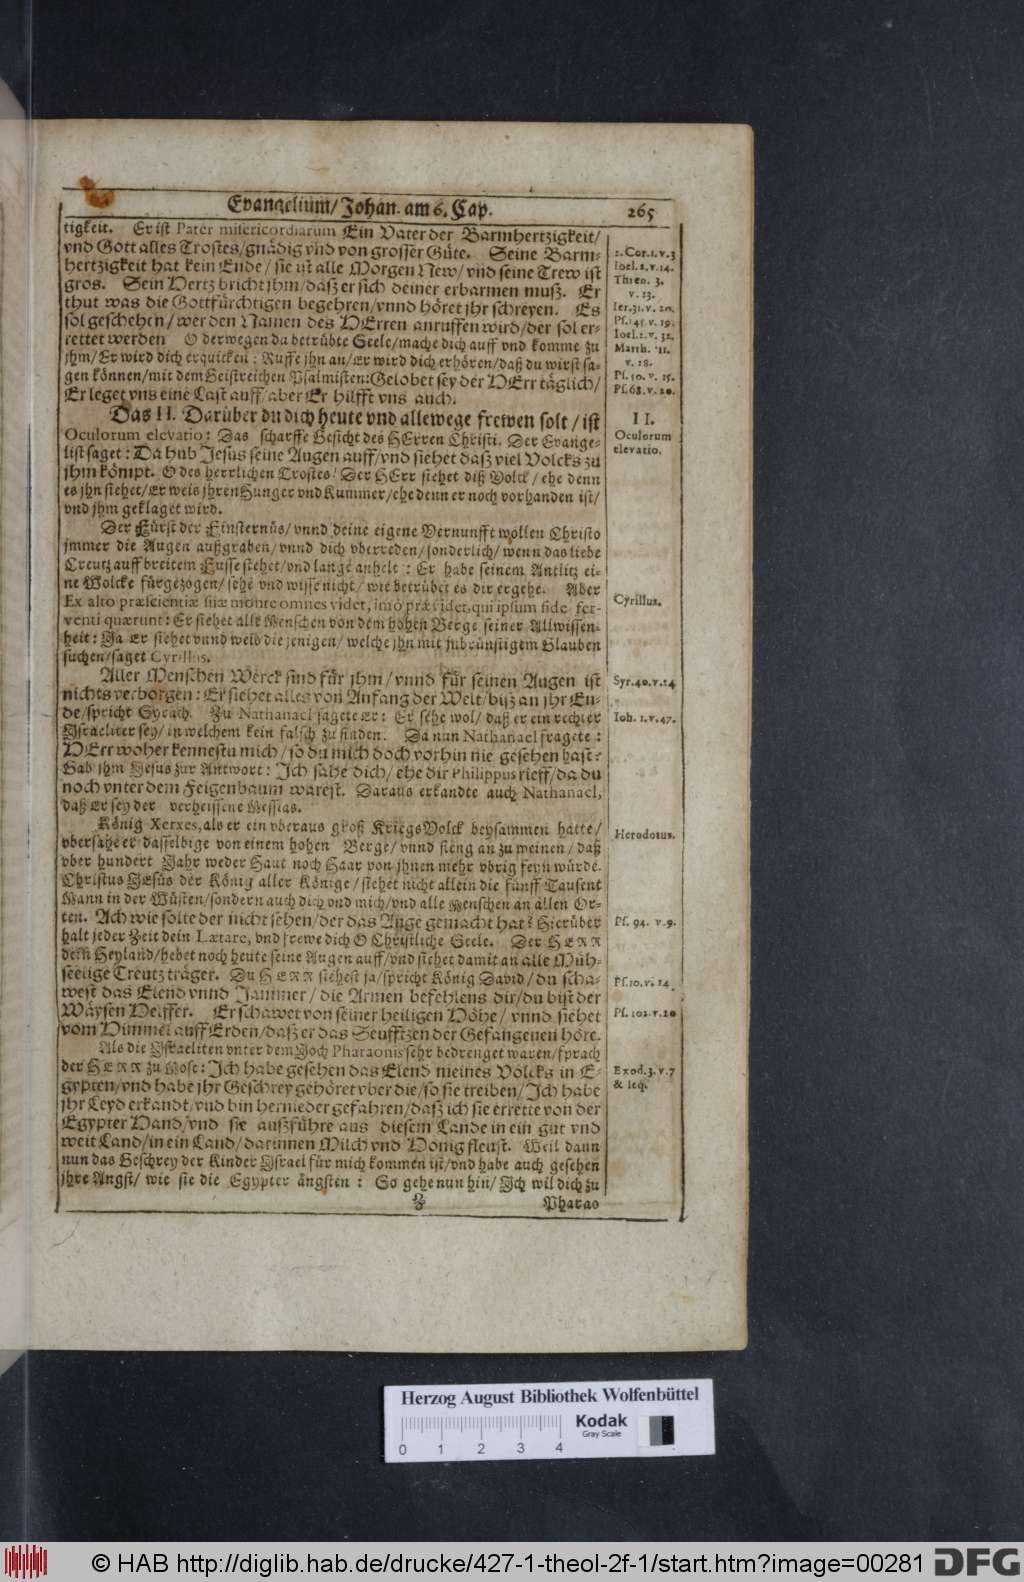 Evangelium/ Johan. am 6. Cap. 265
tigkeit. Er ist Pater misericordiarum Ein Vater der Barmhertzigkeit/
vnd Gott alles Trostes/ gnädig vnd von grosser Güte. Seine Barm-
hertzigkeit hat kein Ende/ sie ist alle Morgen New/ vnd seine Trew ist
gros. Sein Hertz bricht jhm/ daß er sich deiner erbarmen muß. Er
thut was die Gottfürchtigen begehren/ vnnd höret jhr schreyen. Es
sol geschehen/ wer den Namen des HErren anruffen wird/ der sol er-
rettet werden O derwegen du betrübte Seele/ mache dich auff vnd komme zu
jhm/ Er wird dich erquicken: Ruffe jhn an/ Er wird dich erhören/ daß du wirst sa-
gen können/ mit dem Geistreichen Psalmisten: Gelobet sey der HErr täglich/
Er leget vns eine Last auff/ aber Er hilfft vns auch.
Das II. Darüber du dich heute vnd allewege frewen solt/ ist
Oculorum elevatio: Das scharffe Gesicht des HErren Christi. Der Evange-
list saget: Da hub Jesus seine Augen auff/ vnd siehet daß viel Volcks zu
jhm kömpt. O des herrlichen Trostes! Der HErr siehet diß Volck/ ehe denn
es jhn siehet/ Er weis jhren Hunger vnd Kummer/ ehe denn er noch vorhanden ist/
vnd jhm geklaget wird.
Der Fürst der Finsternüs/ vnnd deine eigene Vernunfft wollen Christo
jmmer die Augen außgraben/ vnnd dich vberreden/ sonderlich/ wenn das liebe
Creutz auff breitem Fusse stehet/ vnd lange anhelt: Er habe seinem Antlitz ei-
ne Wolcke fürgezogen/ sehe vnd wisse nicht/ wie betrübet es dir ergehe. Aber
Ex alto præscientiæ suæ monte omnes videt, imò prævidet, qui ipsum fide fer-
venti quærunt: Er siehet alle Menschen von dem hohen Berge seiner Allwissen-
heit: Ja Er siehet vnnd weis die jenigen/ welche jhn mit inbrünstigem Glauben
suchen/ saget Cyrillus.
Aller Menschen Werck sind für jhm/ vnnd für seinen Augen ist
nichts verborgen: Er siehet alles von Anfang der Welt/ biß an jhr En-
de/ spricht Syrach. Zu Nathanael sagete er: Er sehe wol/ daß er ein rechter
Israeliter sey/ in welchem kein falsch zu finden. Da nun Nathanael fragete:
HErr woher kennestu mich/ so du mich doch vorhin nie gesehen hast?
Gab jhm Jesus zur Antwort: Ich sahe dich/ ehe dir Philippus rieff/ da du
noch vnter dem Feigenbaum warest. Daraus erkandte auch Nathanael,
daß Er sey der verheissene Messias.
König Xerxes, als er ein vberaus groß KriegsVolck beysammen hatte/
vbersahe er dasselbige von einem hohen Berge/ vnd fieng an zu weinen/ daß
vber hundert Jahr weder Haut noch Haar von jhnen mehr vbrig seyn würde.
Christus JEsus der König aller Könige/ siehet nicht allein die fünff Tausent
Mann in der Wüsten/ sondern auch dich vnd mich/ vnd alle Menschen an allen Or-
ten. Ach wie solte der nicht sehen/ der das Auge gemacht hat? Hierüber
halt jeder Zeit dein Lætare, vnd frewe dich O Christliche Seele. Der HERR
dein Heyland/ hebet noch heute seine Augen auff/ vnd siehet damit an alle Müh-
seelige Creutz träger. Du HERR siehest ja/ spricht König David/ du scha-
west das Elend vnnd Jammer/ die Armen befehlens dir/ du bist der
Wäysen Helffer. Er schawet von seiner heiligen Höhe/ vnnd siehet
vom Himmel auff Erden/ daß er das Seufftzen der Gefangenen höre.
Als die Israeliten vnter dem Joch Pharaonis sehr bedrenget waren/ sprach
der HERR zu Mose: Ich habe gesehen das Elend meines Volcks in E-
gypten/ vnd habe jhr Geschrey gehöret vber die/ so sie treiben/ Ich habe
jhr Leyd erkandt/ vnd bin hernieder gefahren/ daß ich sie errette von der
Egypter Hand/ vnd sie außführe aus diesem Lande in ein gut vnd
weit Land/ in ein Land/ darinnen Milch vnd Honig fleust. Weil dann
nun das Geschrey der Kinder Israel für mich kommen ist/ vnd habe auch gesehen
jhre Angst/ wie sie die Egypter ängsten: So gehe nun hin/ Ich wil dich zu
Z Pharao
2. Cor. 1. v. 3
Ioel. 2. v. 14.
Thren. 3.
v. 23.
Ier. 31. v. 20.
Ps. 145. v. 19.
Ioel. 2. v. 32.
Matth. 11.
v. 28.
Ps. 50. v. 15.
Ps. 68. v. 20.
II.
Oculorum
elevatio.
Cyrillus.
Syr. 40. v. 24
Ioh. 1. v. 47.
Herodotus.
Ps. 94. v. 9.
Ps. 10. v. 14
Ps. 102. v. 20
Exod. 3. v. 7
& seq.
Herzog August Bibliothek Wolfenbüttel
Kodak
Gray Scale
0 1 2 3 4
© HAB http://diglib.hab.de/drucke/427-1-theol-2f-1/start.htm?image=00281 DFG